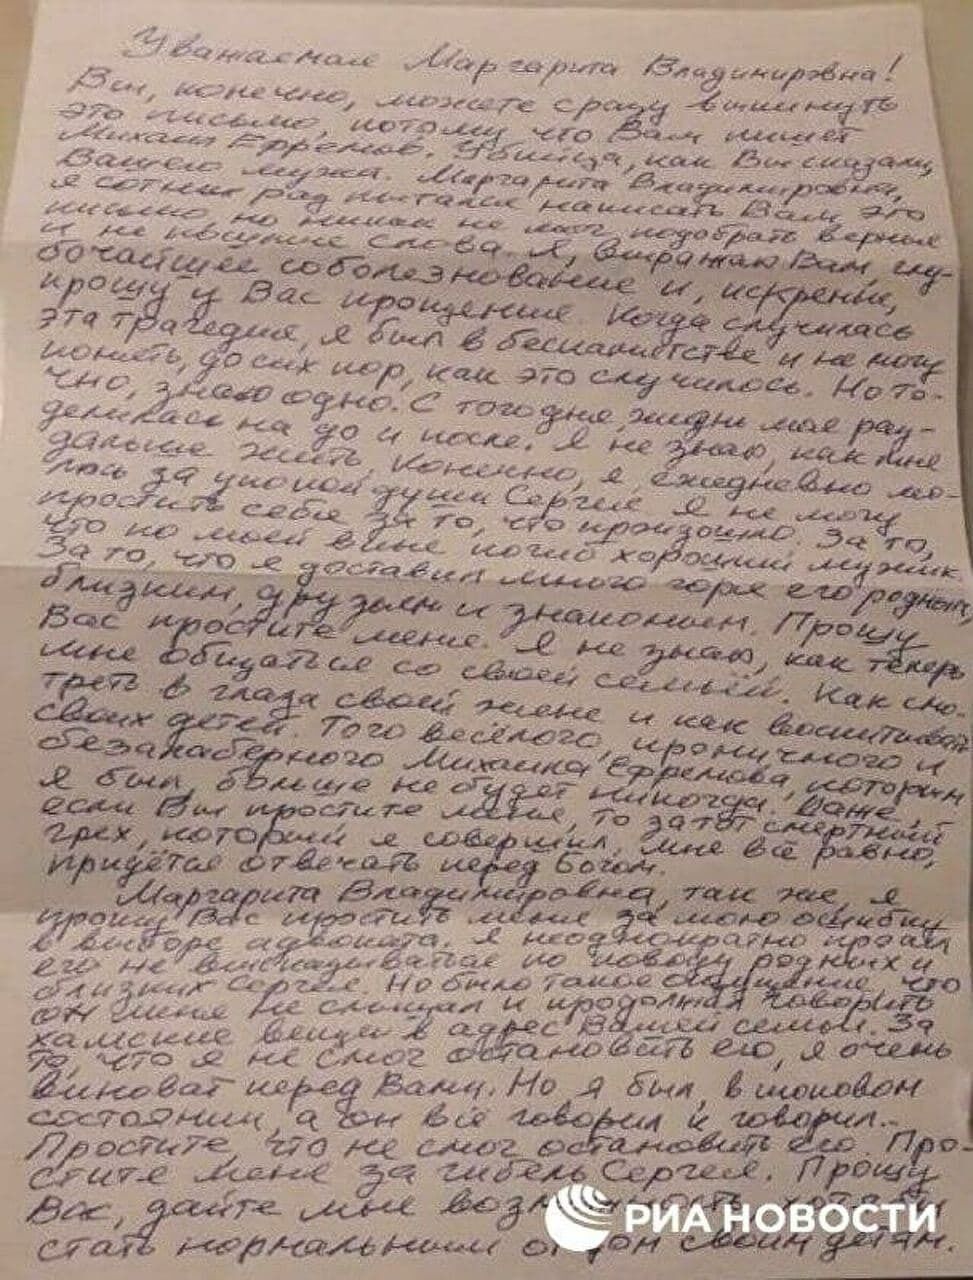 Уважаемая Маргарита Владимировна!
Вы, конечно, можете сразу выкинуть
это письмо, потому что Вам пишет
Михаил Ефремов. Убийца, как Вы сказали,
Вашего мужа. Маргарита Владимировна,
я сотни раз пытался написать Вам это
письмо, но никак не мог подобрать верные
и не пустые слова. Я, выражаю Вам, глу-
бочайшее соболезнование и, искренне,
прошу у Вас прощения. Когда случилась
эта трагедия, я был в беспамятстве и не могу
понять, до сих пор, как это случилось. Но то-
чно, знаю одно. С того дня, жизнь моя раз-
делилась на до и после. Я не знаю, как мне
дальше жить. Конечно, я, ежедневно мо-
люсь за упокой души Сергея. Я не могу
простить себя за то, что произошло. За то,
что по моей вине погиб хороший мужик
За то, что я доставил много горя его родным,
близким, друзьям и знакомым. Прошу
Вас простите меня. Я не знаю, как теперь
мне общаться со своей семьёй. Как смо-
треть в глаза своей жене и как воспитывать
своих детей. Того весёлого, ироничного и
безалаберного Михаила Ефремова, которым
я был, больше не будет никогда. Даже,
если Вы простите меня, то за тот смертный
грех, который я совершил, мне всё равно,
придётся отвечать перед Богом.
Маргарита Владимировна, так же, я
прошу Вас простить меня за мою ошибку
в выборе адвоката. Я неоднократно просил
его не высказываться по поводу родных и
близких Сергея. Но было такое ощущение, что
он меня не слышал и продолжал говорить
хамские вещи в адрес Вашей семьи. За
то, что я не смог остановить его, я очень
виноват перед Вами. Но я был, в шоковом
состоянии, а он всё говорил и говорил..
Простите, что не смог остановить его. Про-
стите меня за гибель Сергея. Прошу
Вас, дайте мне возможность хотя бы
стать нормальным отцом своим детям.
РИА НОВОСТИ